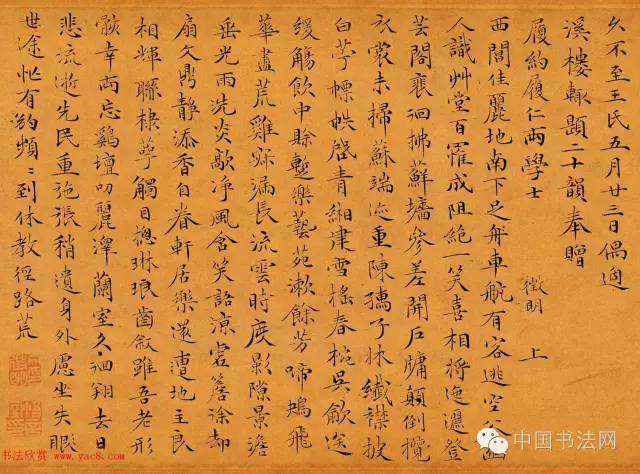 久不至王氏五月廿三日偶過
溪樓輙題二十韻奉贈
履約履仁兩學士
徵明 上
西閶佳麗地南下足車航有客逃空谷幽
人識艸堂百罹成阻絕一笑喜相將迤邐登
芸閣褰徊拂蘚墻參差開戶牖顛倒攬
衣裳未掃蘇端迹重陳孺子牀纖襟披
白苧幖帙啓青緗建雪搖春椀吳歈送
緩觴飲中賒蹔樂藝苑漱餘芳啼鴂飛
華盡荒雞寐漏長流雲時度影隙景澹
垂光雨洗炎歊淨風含笑語涼虛簷涂却
扇文鼎靜添香自眷軒居樂還遭地主良
相輝聯棣萼觸目摠琳琅齒敘雖吾老形
骸幸兩忘鷄壇叨麗澤蘭室久徊翔去日
悲流逝先民重弛張稍遺身外慮坐失眼
世途忙有約頻〻到休教徑路荒
书法欣赏 www.yac8.com
中国书法网